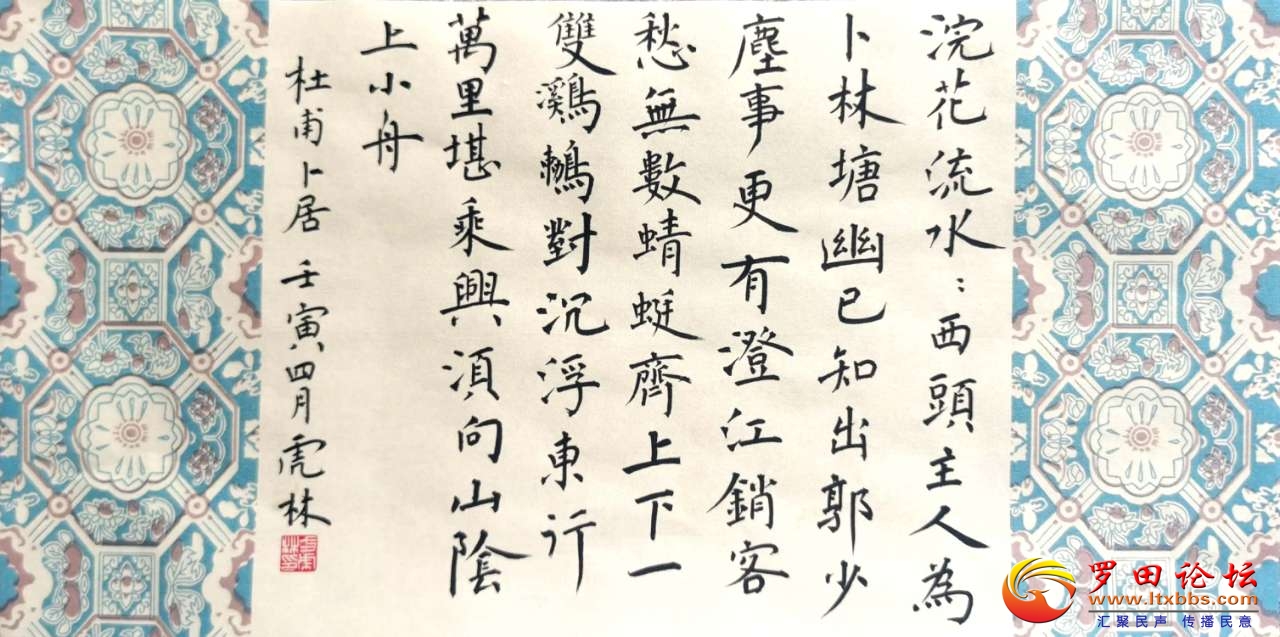 浣花流水：西頭主人為
卜林塘幽已知出郭少
塵事更有澄江銷客
愁無數蜻蜓齊上下一
雙鸂鶒對沉浮東行
萬里堪乘興須向山陰
上小舟
杜甫卜居 壬寅四月虎林
罗田论坛
www.ltxbbs.com
汇聚民声 传播民意